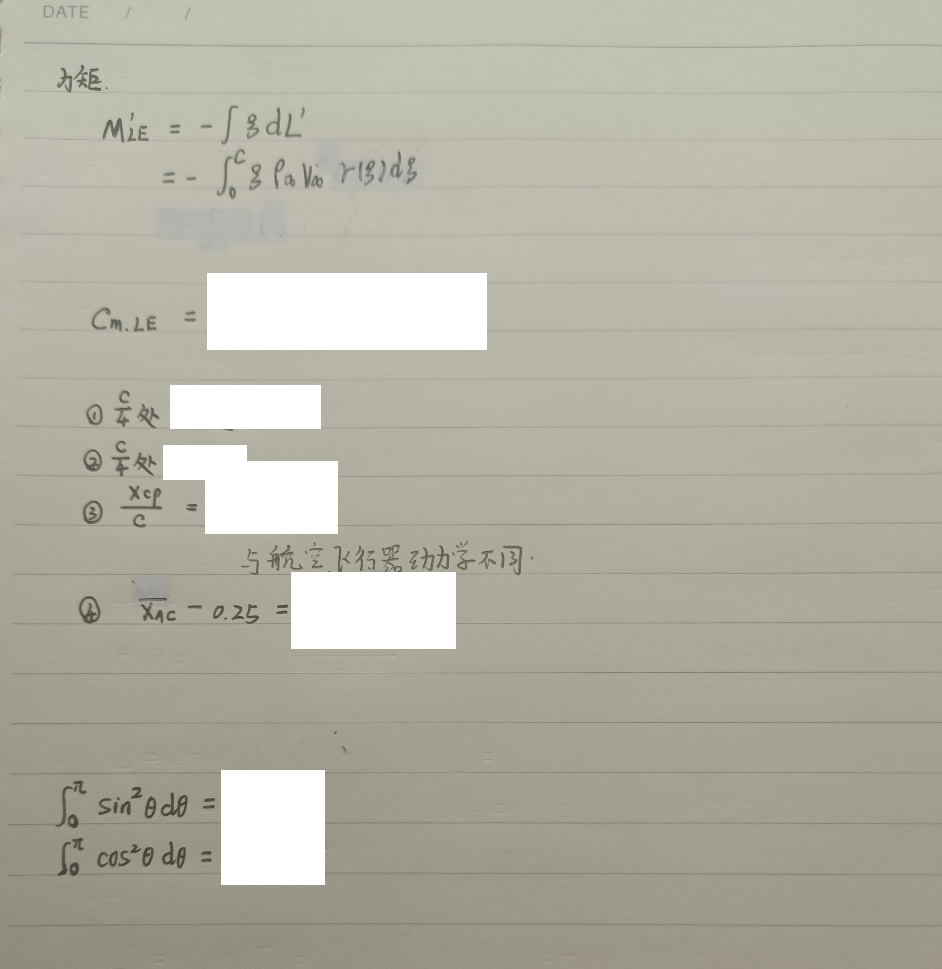 DATE / /
力矩.
M'LE = - ∫ ξ dL'
= - ∫₀ᶜ ξ ρ∞ V∞ γ(ξ) dξ
Cm.LE =
① c/4 处
② c/4 处
③ xcp/c =
与航空飞行器动力学不同.
④ x̄AC - 0.25 =
∫₀^π sin²θ dθ =
∫₀^π cos²θ dθ =